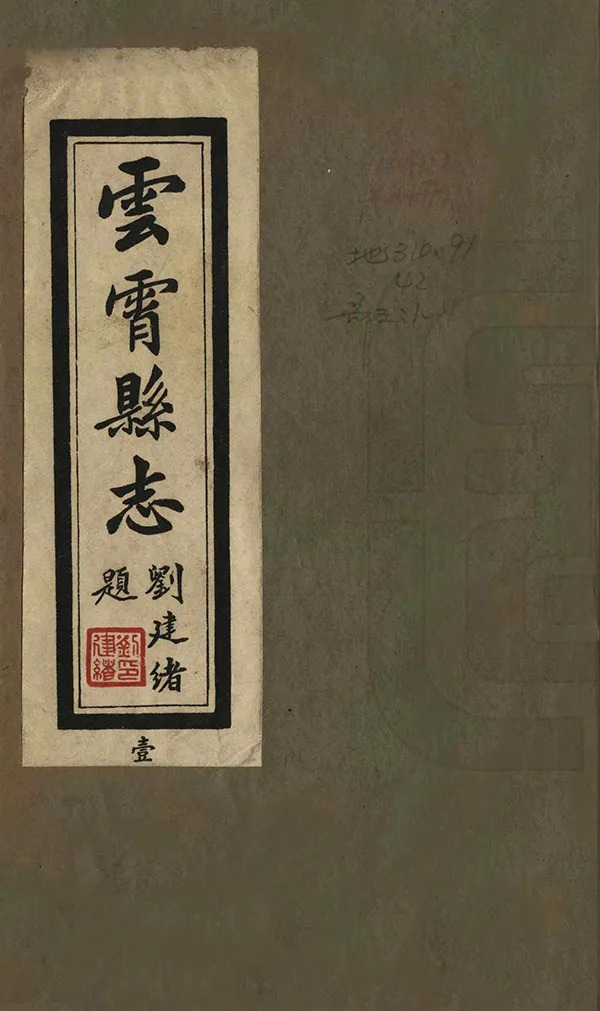 雲霄縣志
劉建緒
題
劉印
建緒
壹
地310.91
42